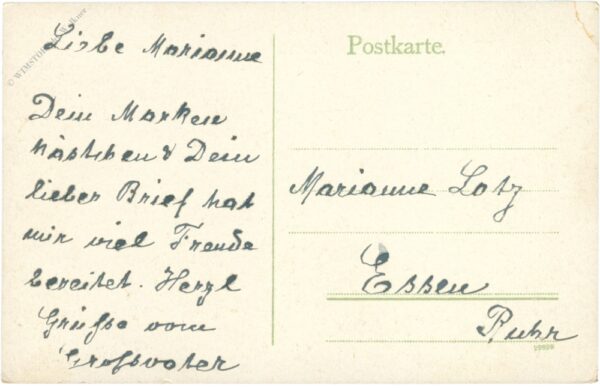 Liebe Marianne
Dein Marken
kästchen & Dein
lieber Brief hat
mir viel Freude
bereitet. Herzl
Grüsse vom
Grossvater
Postkarte.
Marianne Lotz
Essen
Ruhr